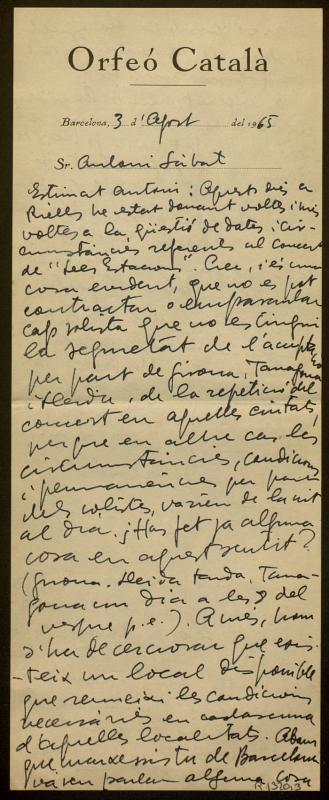 Orfeó Català
Barcelona, 3 d'Agost del 1965
Sr. Antoni Sàbat
Estimat Antoni: Aquests dies a
Rielles he estat donant voltes i més
voltes a la qüestió de dates i cir-
cumstàncies referents al concert
de "Les Estacions". Crec, i és una
cosa evident, que no es pot
contractar o emparaular
cap solista que no es tingui
la seguretat de l'acceptació
per part de Girona, Tarragona
i Lleida, de la repetició del
concert en aquelles ciutats,
perque en altre cas les
circumstàncies, condicions
i permanències per part
dels solistes, varien de la nit
al dia. ¿Has fet ja alguna
cosa en aquest sentit?
(Girona, Lleida tarda, Tarra-
gona un dia a les 8 del
vespre p.e.). A mes, hom
s'ha de cerciorar que exis-
teix un local disponible
que reuneixi les condicions
necessàries en cadascuna
d'aquelles localitats. Abans
que marxessiu de Barcelona
vàrem parlar alguna cosa